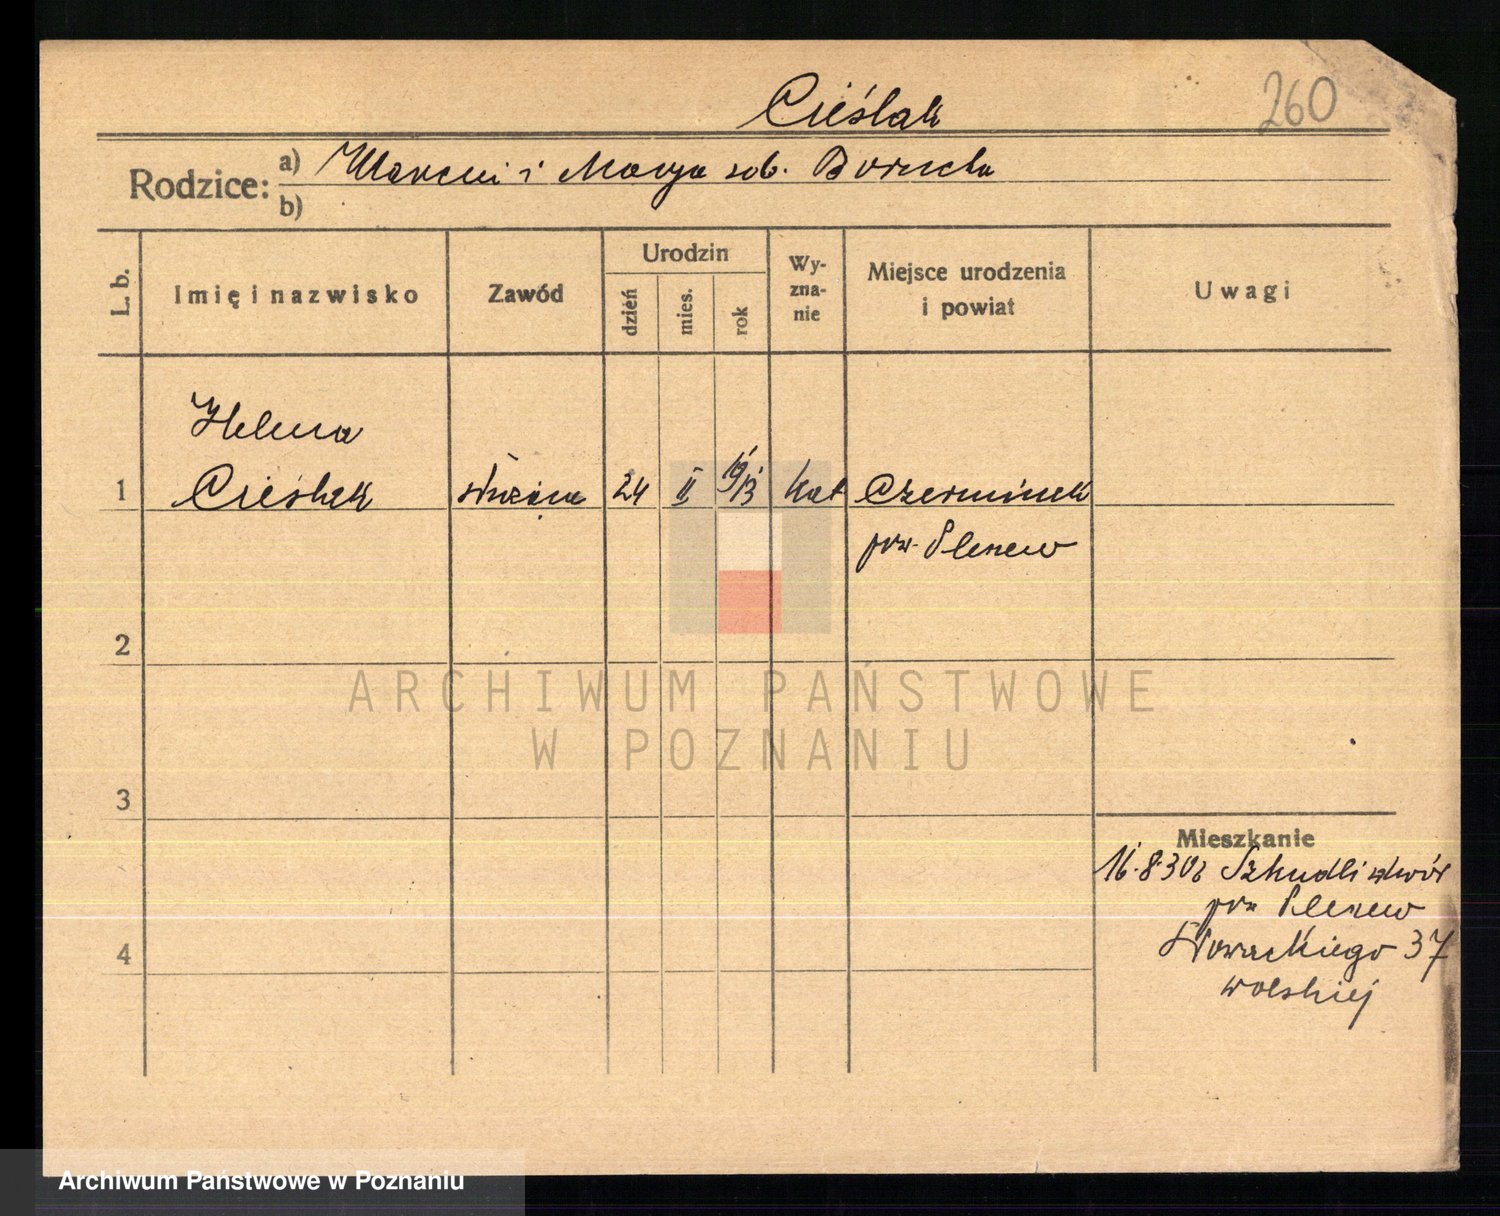 Cieślak
260
Rodzice: a) Marcin i Marya rob. Borucka
b)
L. b. Imię i nazwisko Zawód Urodzin Wy- zna- nie Miejsce urodzenia i powiat Uwagi
dzień mies. rok
Helena
1 Cieślak służąca 24 II 1913 kat Czerminek
pow. Pleszew
2
ARCHIWUM PAŃSTWOWE
W POZNANIU
3
Mieszkanie
16.8.30 z Szkudli
pow Pleszew
4 Słowackiego 37
Archiwum Państwowe w Poznaniu